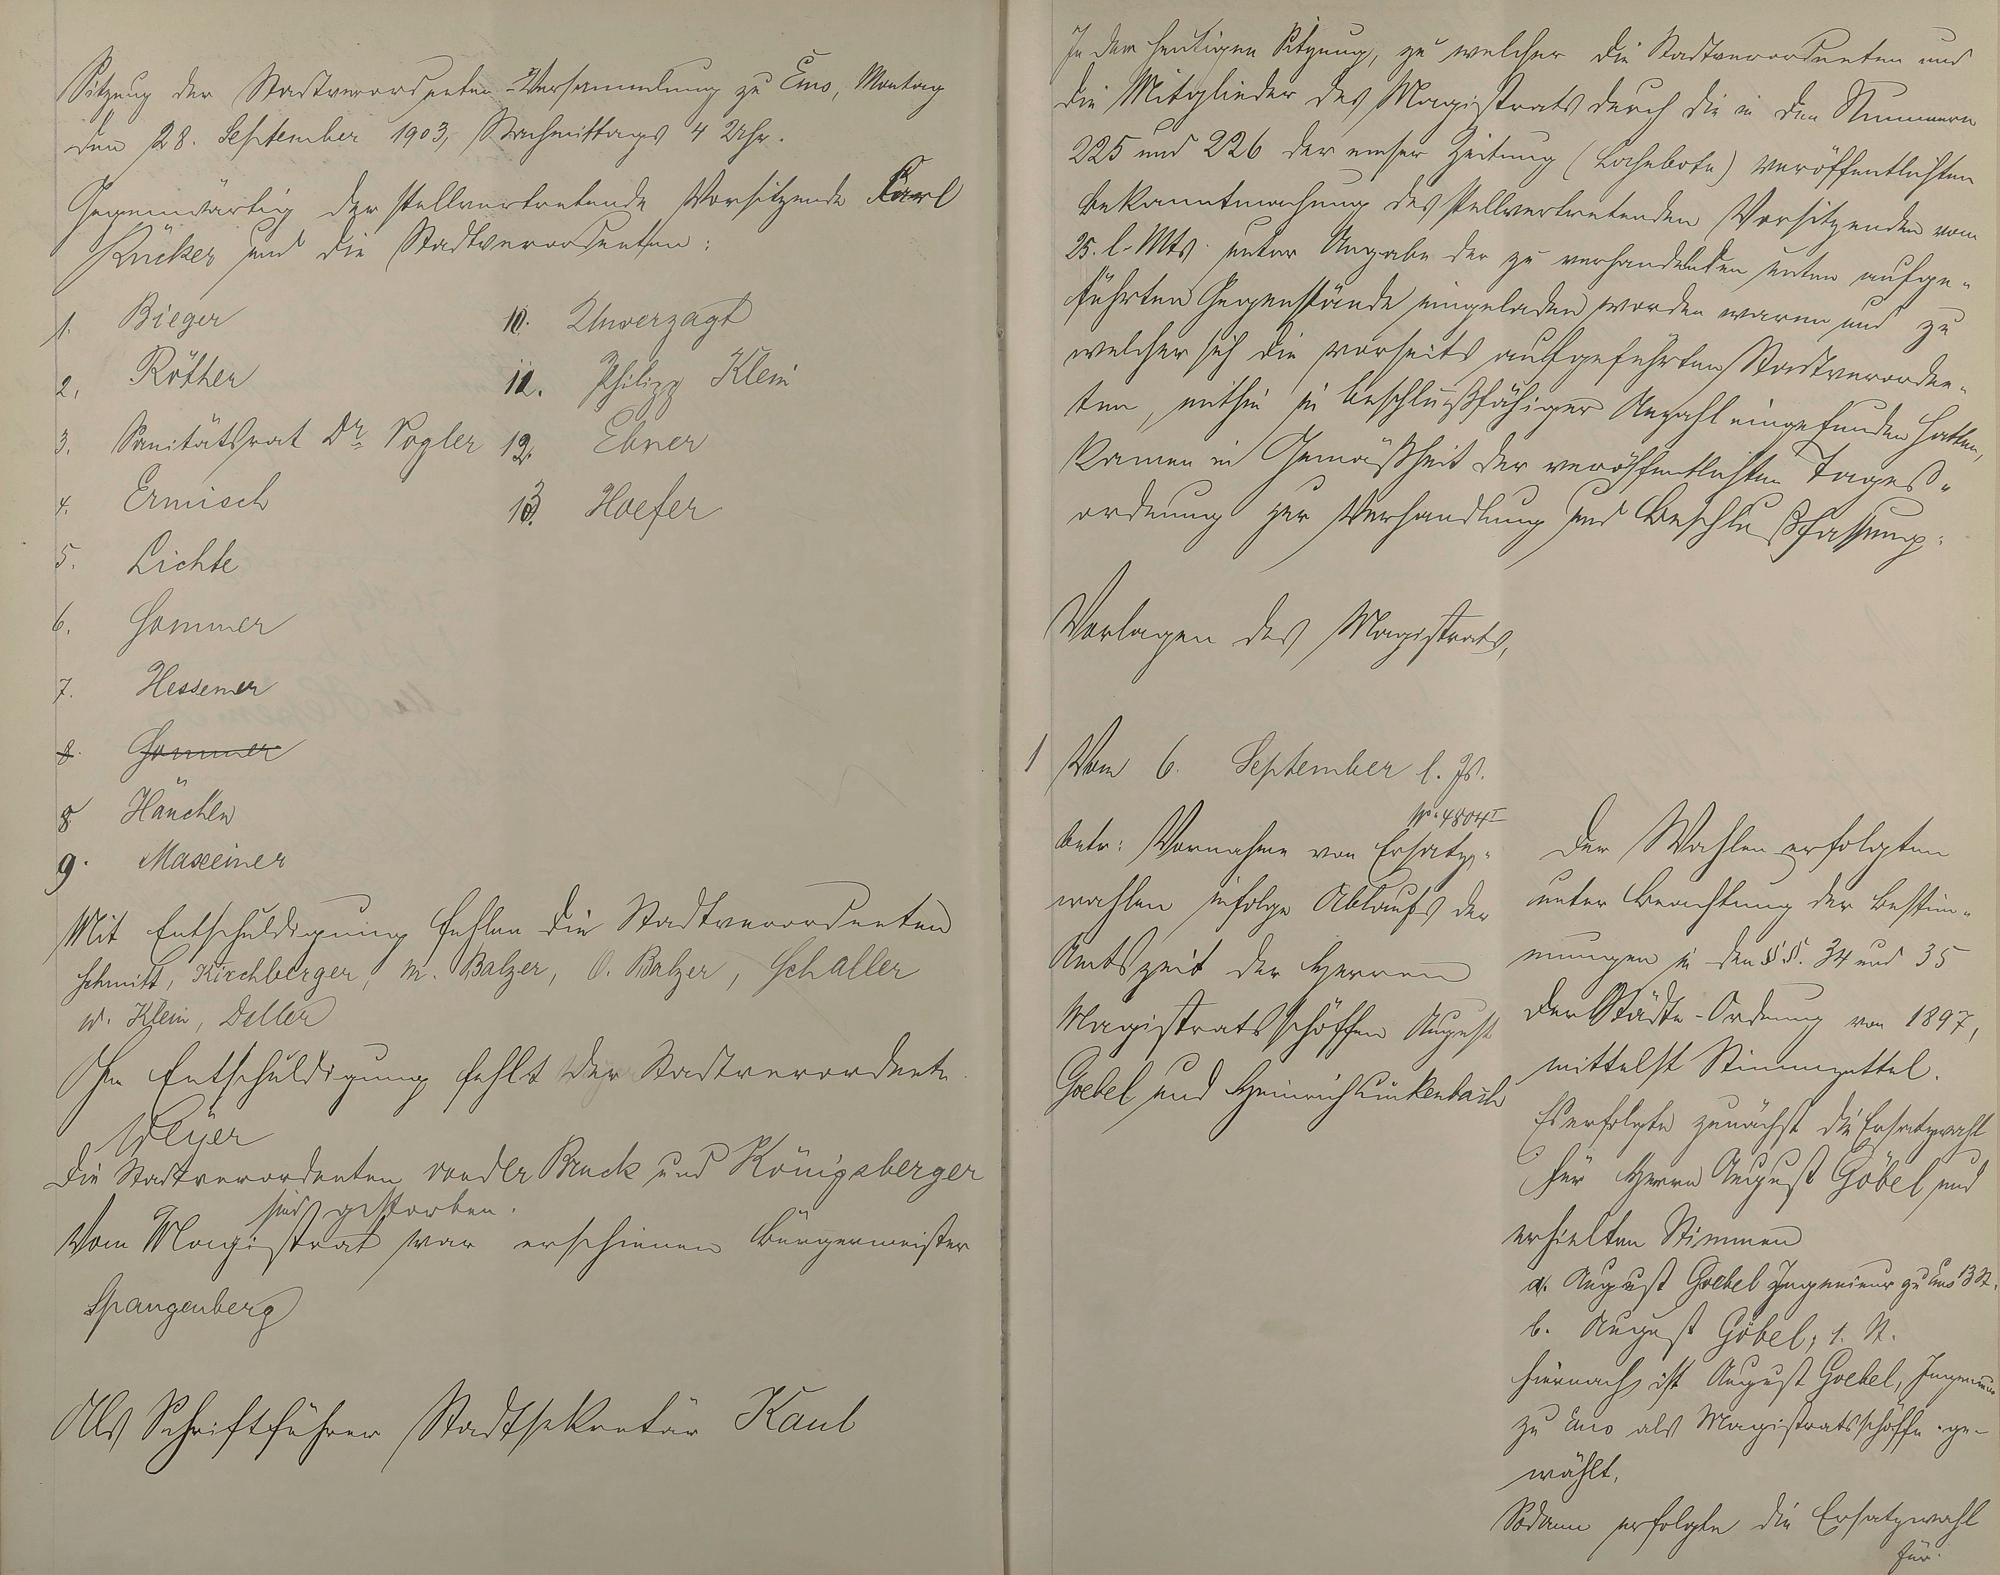 Sitzung der Stadtverordneten-Versammlung zu Ems, Montag
den 28. September 1903, Nachmittags 4 Uhr.
Gegenwärtig der stellvertretende Vorsitzende Karl
Rücker und die Stadtverordneten:
1. Bieger
2. Röther
3. Sanitätsrat Dr. Vogler
4. Ermisch
5. Lichte
6. Sommer
7. Hessemer
8. Sommer
8 Hänchen
9. Maxeiner
10. Unverzagt
11. Philipp Klein
12. Ebner
13. Hoefer
Mit Entschuldigung fehlen die Stadtverordneten
Schmitt, Kirchberger, M. Balzer, O. Balzer, Schaller
W. Klein, Döller
Ohne Entschuldigung fehlt der Stadtverordnete
Meyer
Die Stadtverordneten von der Bruck und Königsberger
sind gestorben.
Vom Magistrat war erschienen Bürgermeister
Spangenberg
Als Schriftführer Stadtsekretär Kaul
In der heutigen Sitzung, zu welcher die Stadtverordneten und
die Mitglieder des Magistrats durch die in den Nummern
225 und 226 der emser Zeitung (Lahnbote) veröffentlichten
Bekanntmachung des stellvertretenden Vorsitzenden vom
25. l. Mts. unter Angabe der zu verhandelnden unten aufge-
führten Gegenstände eingeladen worden waren und zu
welcher sich die vorseits aufgeführten Stadtverordne-
ten, mithin in beschlußfähiger Anzahl eingefunden hatten,
kamen in Gemäßheit der veröffentlichten Tages-
ordnung zur Verhandlung und Beschlußfassung:
Vorlagen des Magistrats,
1 Vom 6. September l. Js.
No. 4804 I
betr: Vornahme von Ersatz-
wahlen infolge Ablaufs der
Amtszeit der Herren
Magistratsschöffen August
Goebel und Heinrich Linkenbach
Der Wahlen erfolgten
unter Beachtung der Bestim-
mungen in den §§. 34 und 35
der Städte-Ordnung von 1897,
mittelst Stimmzettel.
Es erfolgte zunächst die Ersatzwahl
für Herrn August Göbel und
erhielten Stimmen
a. August Goebel Ingenieur zu Ems 13 St.
b. August Göbel, 1. St.
Hiernach ist August Goebel, Ingenieur
zu Ems als Magistratsschöffe ge-
wählt.
Sodann erfolgte die Ersatzwahl
für